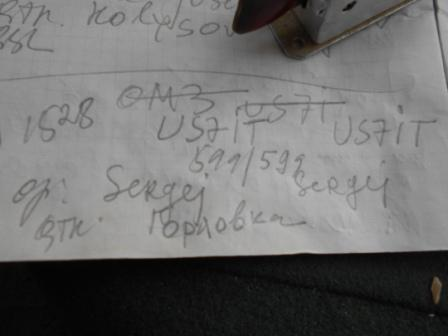 qth. Kolp
SSL
1528 OM3 US7iT
US7iT US7iT
599/599
op: Sergej Sergej
qth. Горловка